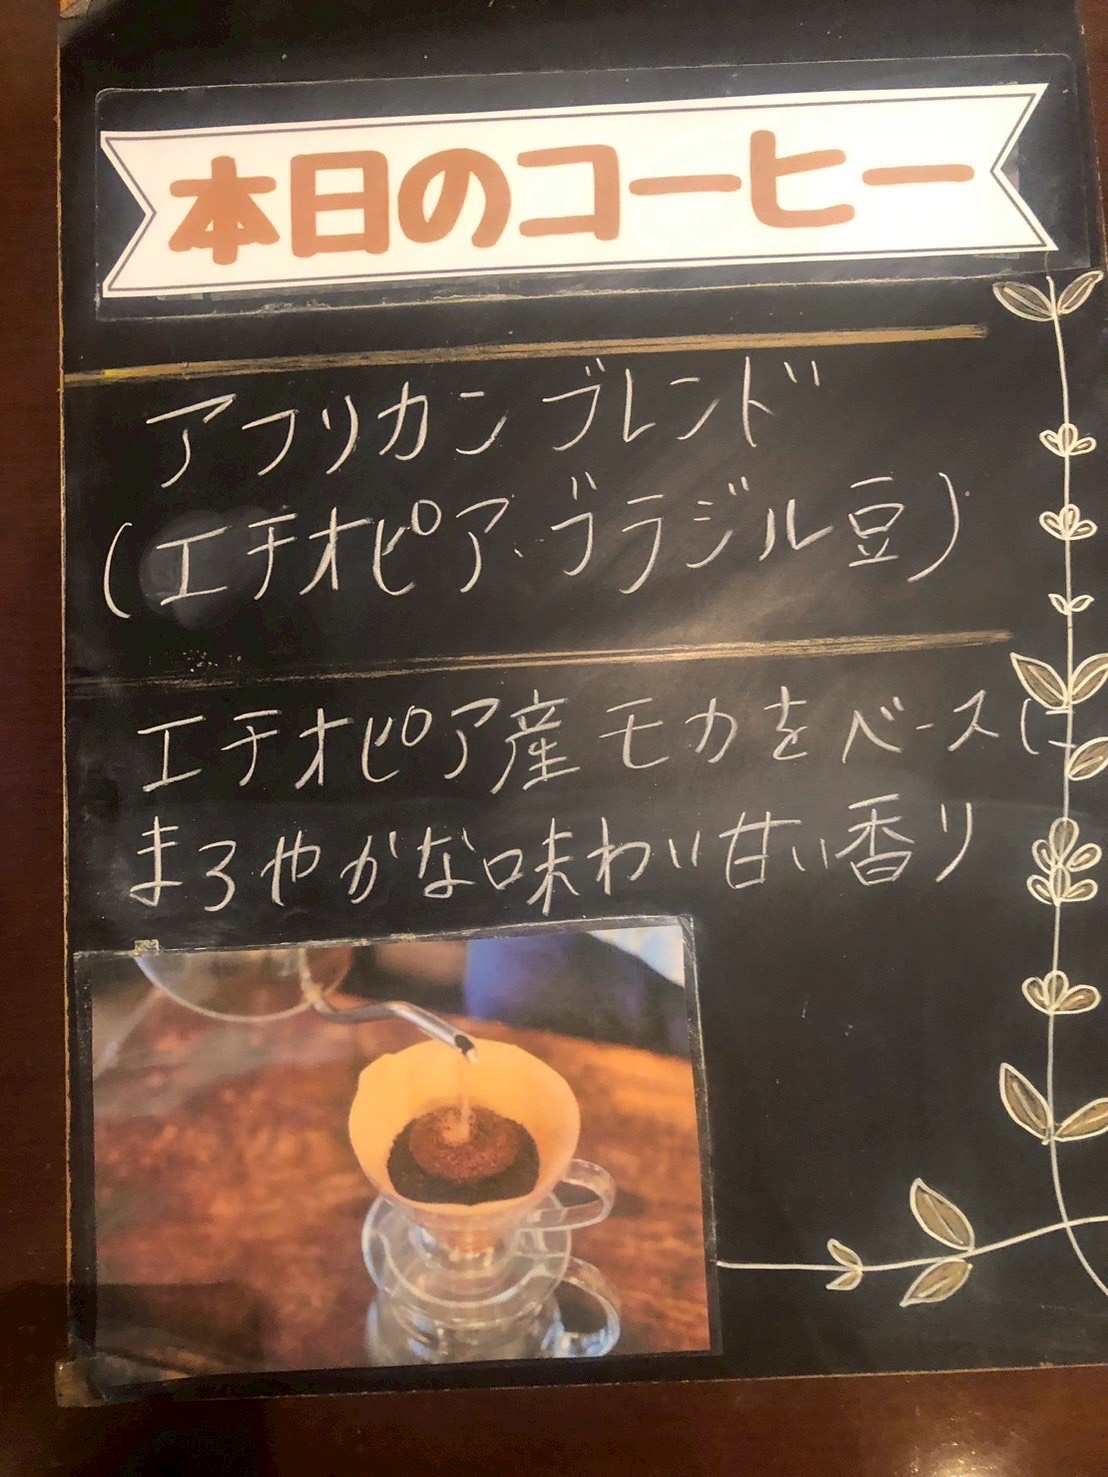 本日のコーヒー
アフリカンブレンド
(エチオピア・ブラジル豆)
エチオピア産モカをベースに
まろやかな味わい甘い香り